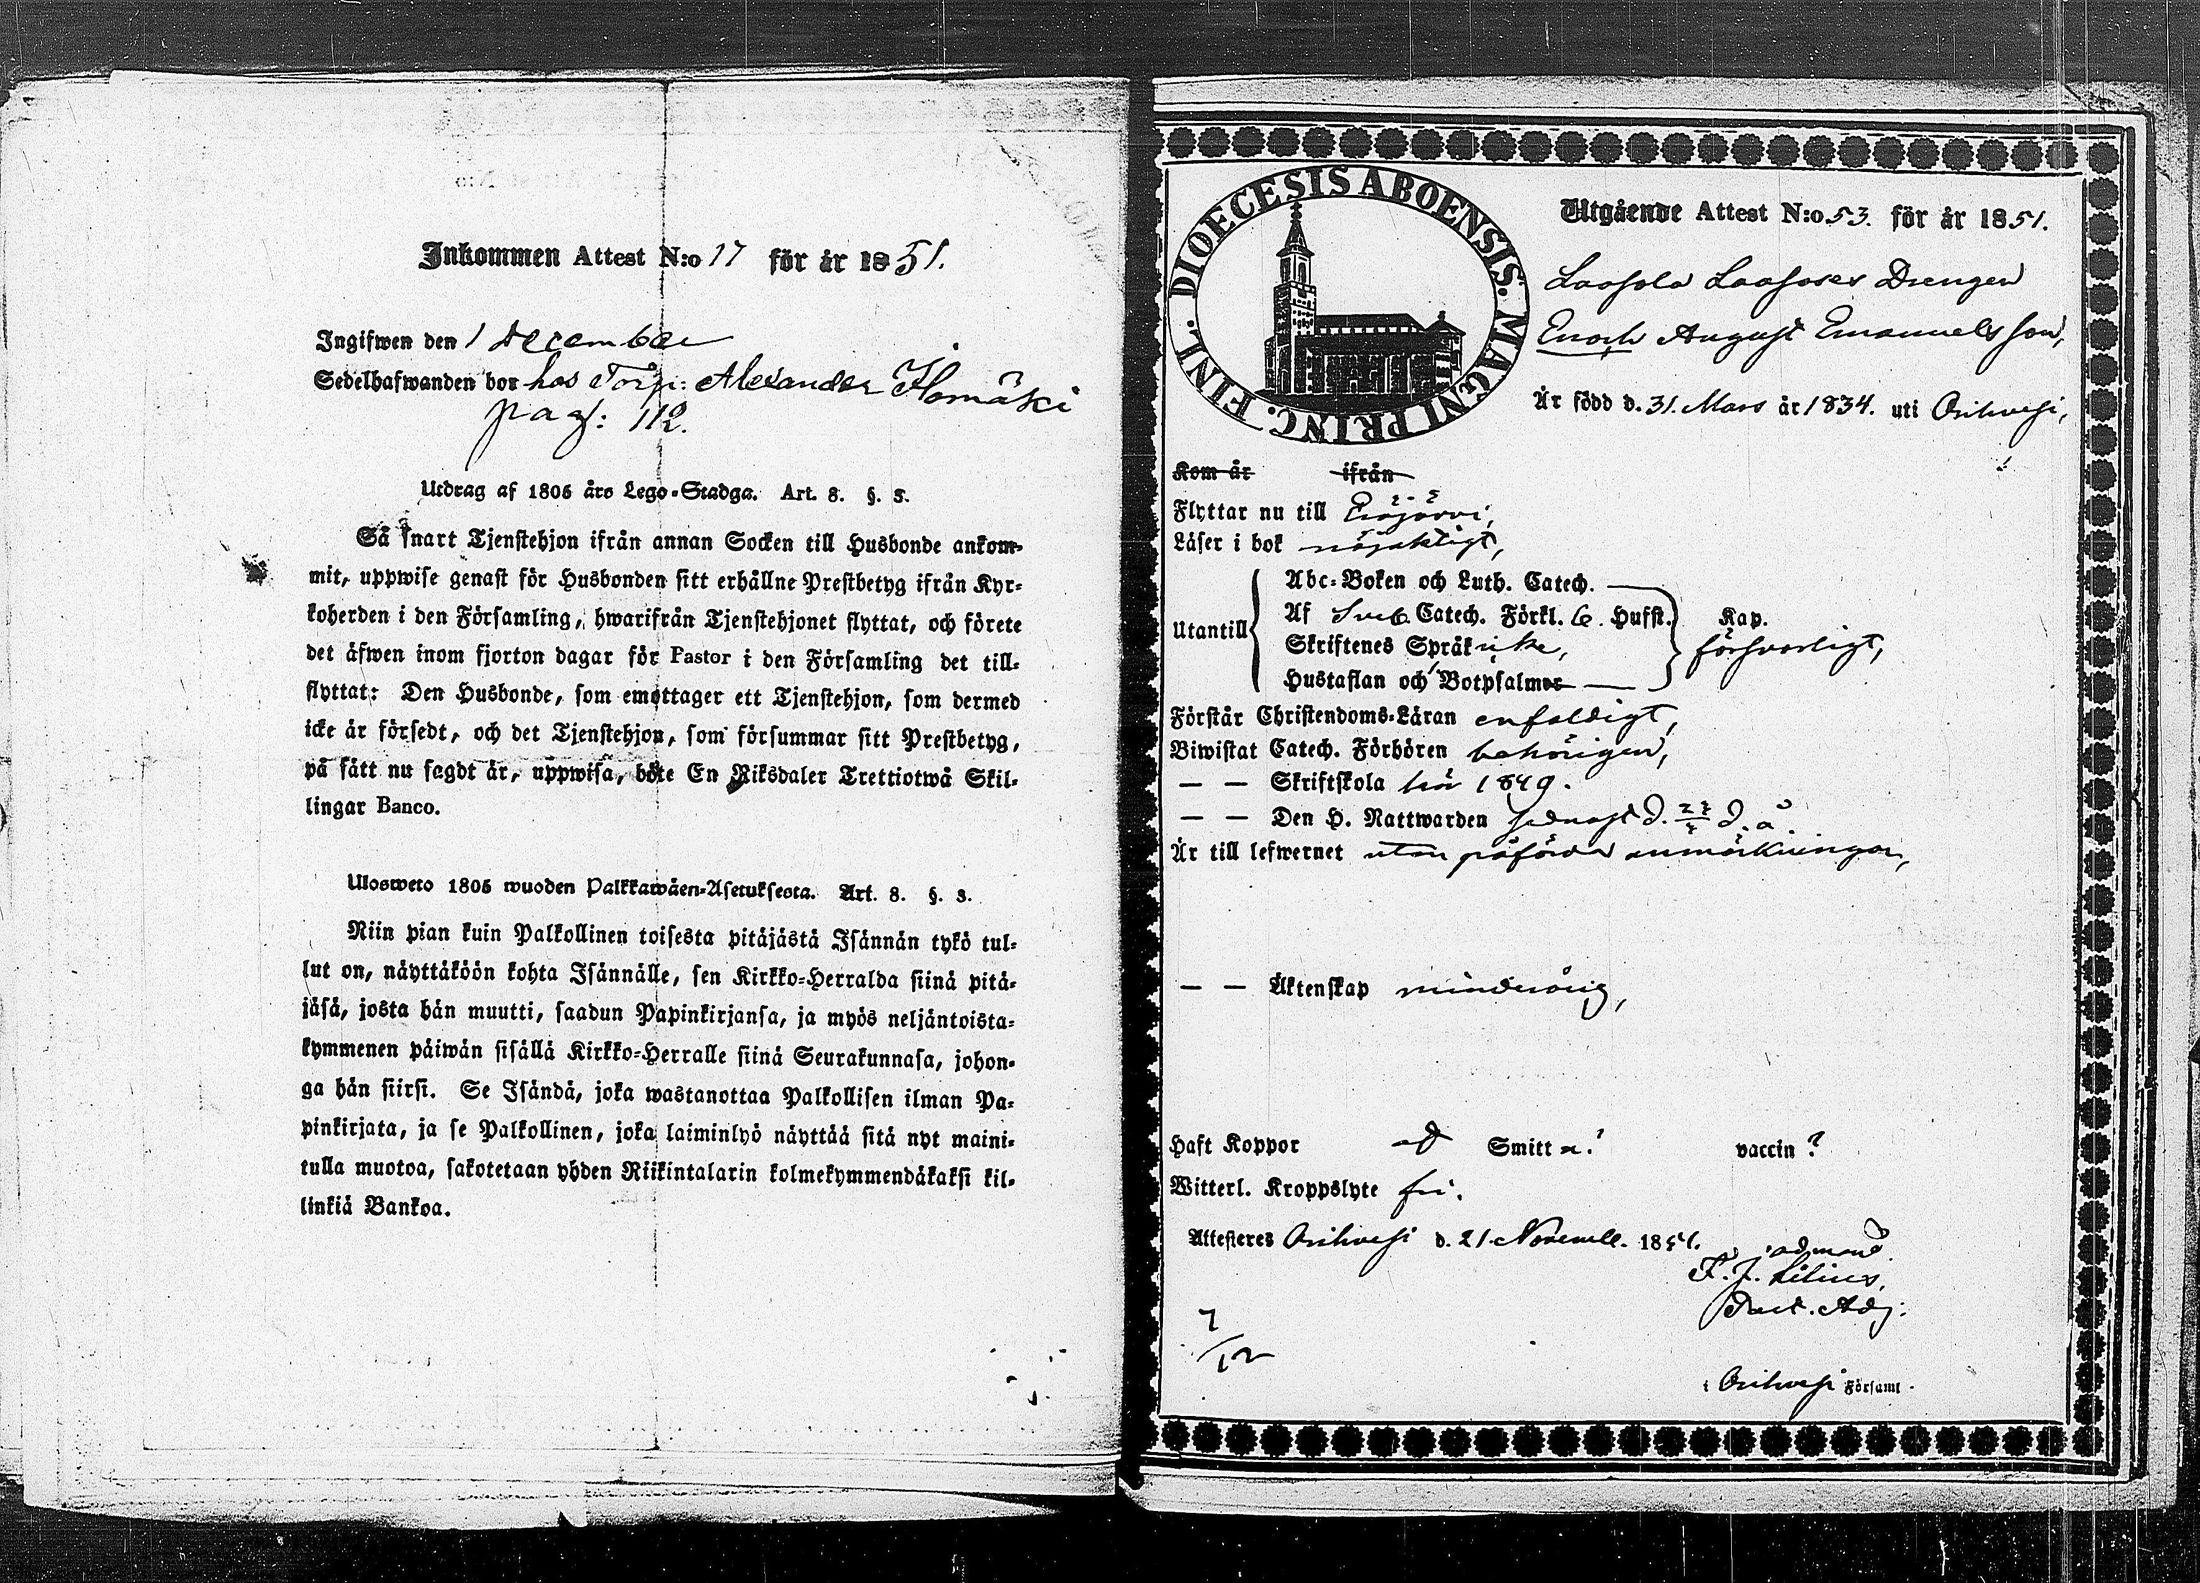 Inkommen Attest N:o 17 för år 1851.
Ingifwen den 1 December
Sedelhafwanden bor hos Torp: Alexander Ilomäki
pag: 112.
Utdrag af 1805 års Lego-Stadga. Art. 8. §. 3.
Så snart Tjenstehjon ifrån annan Socken till Husbonde ankom-
mit, uppwise genast för Husbonden sitt erhållne Prestbetyg ifrån Kyr-
koherden i den Församling, hwarifrån Tjenstehjonet flyttat, och förete
det äfwen inom fjorton dagar för Pastor i den Församling det till-
flyttat: Den Husbonde, som emottager ett Tjenstehjon, som dermed
icke är försedt, och det Tjenstehjon, som försummar sitt Prestbetyg,
på sätt nu sagdt är, uppwisa, böte En Riksdaler Trettiotwå Skil-
lingar Banco.
Ulosweto 1805 wuoden Palkkawäen-Asetuksesta. Art. 8. §. 3.
Niin pian kuin Palkollinen toisesta pitäjästä Isännän tykö tul-
lut on, näyttäköön kohta Isännälle, sen Kirkko-Herralda siinä pitä-
jäsä, josta hän muutti, saadun Papinkirjansa, ja myös neljäntoista-
kymmenen päiwän sisällä Kirkko-Herralle siinä Seurakunnasa, johon-
ga hän siirsi. Se Isändä, joka wastanottaa Palkollisen ilman Pa-
pinkirjata, ja se Palkollinen, joka laiminlyö näyttää sitä nyt maini-
tulla muotoa, sakotetaan yhden Riikintalarin kolmekymmendäkaksi kil-
linkiä Bankoa.
DIOECESIS ABOENSIS. MAGNI PRINC. FINL.
Utgående Attest N:o 53. för år 1851.
Drengen
Enoch August Emanuelsson,
Är född d. 31. Mars år 1834. uti Orihvesi,
Kom år ifrån
Flyttar nu till Eräjärvi,
Läser i bok nöjaktigt,
Abc-Boken och Luth. Catech.
Utantill Af Sveb. Catech. Förkl. 6. Hufst. Kap.
Skriftenes Språk icke, försvarligt,
Hustaflan och Botpsalmer
Förstår Christendoms-Läran enfaldigt,
Biwistat Catech. Förhören behörigen,
— — Skriftskola här 1849.
— — Den H. Nattwarden senast d. d. å.
Är till lefwernet utan påförda anmärkningar,
— — Äktenskap minderårig,
Haft Koppor Smitt vaccin ?
Witterl. Kroppslyte fri.
Attesteres Orihvesi d. 21. Novemb. 1851.
F. J. Lilius,
Past. Adj:
7/12
i Orihvesi Församl.